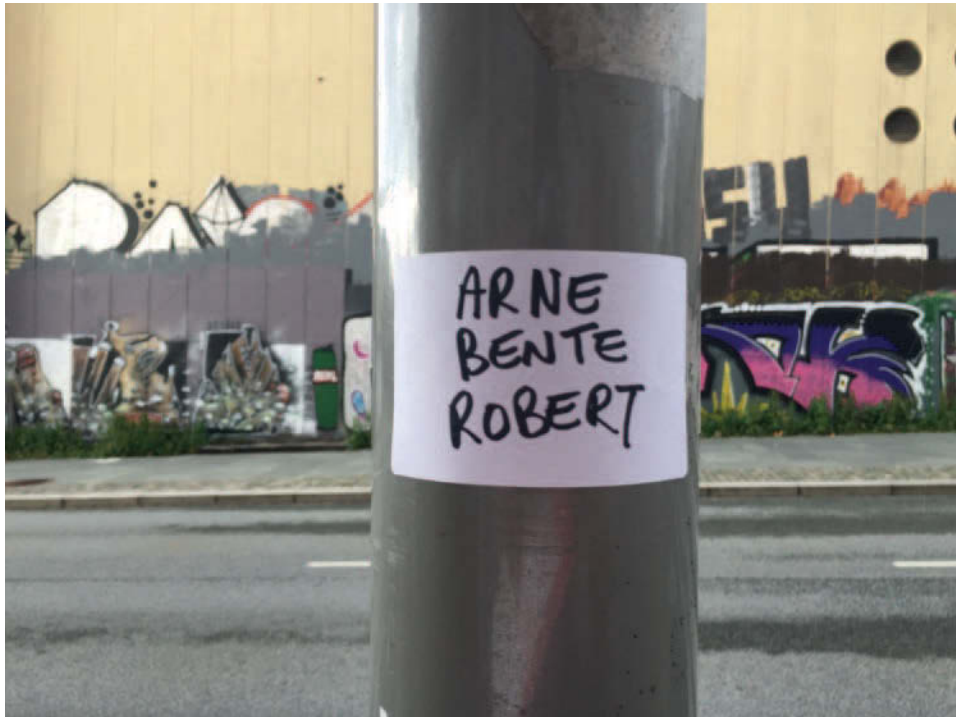 ARNE
BENTE
ROBERT